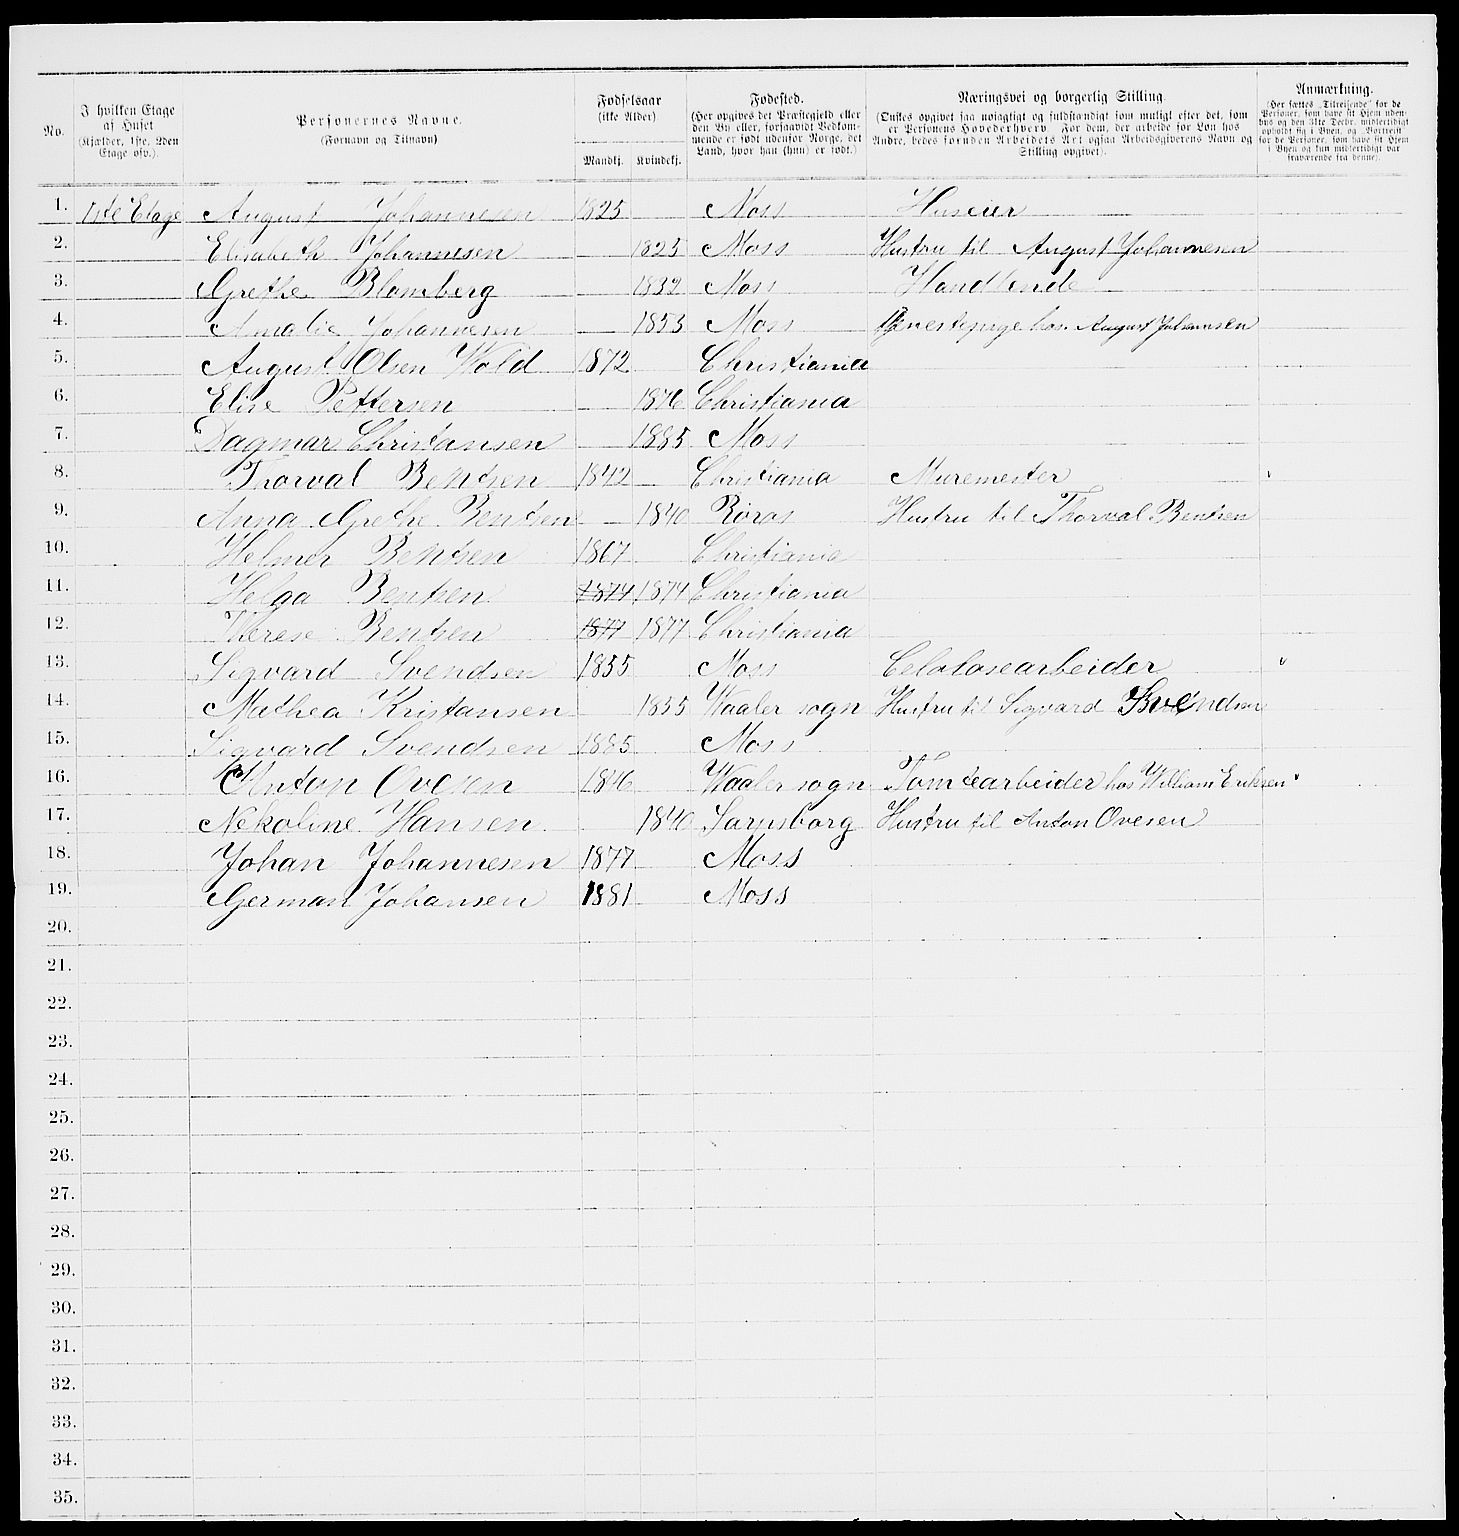 No.
I hvilken Etage af Huset (Kjælder, 1ste, 2den Etage osv.).
Personernes Navne. (Fornavn og Tilnavn)
Fødselsaar (ikke Alder)
Mandkj. Kvindekj.
Fødested. (Her opgives det Præstegjeld eller den By eller, forsaavidt Vedkommende er født udenfor Norge, det Land, hvor han (hun) er født.)
Næringsvei og borgerlig Stilling. (Ønskes opgivet saa nøiagtigt og fuldstændigt som muligt efter det, som er Personens Hovederhverv. For dem, der arbeide for Løn hos Andre, bedes foruden Arbeidets Art ogsaa Arbeidsgiverens Navn og Stilling opgivet).
Anmærkning. (Her sættes „Tilreisende“ for de Personer, som have sit Hjem udenbys og den 31te Decbr. midlertidigt opholdt sig i Byen, og „Bortreist“ for de Personer, som have sit Hjem i Byen og kun midlertidigt var fraværende fra denne).
1. 1ste Etage August Johannesen 1825 Moss Huseier
2. Elisabeth Johannesen 1825 Moss Hustru til August Johannesen
3. Grethe Blomberg 1832 Moss Handlende
4. Amalie Johannesen 1853 Moss hos August Johansen
5. August Olsen Wold 1872 Christiania
6. Elise Pettersen 1876 Christiania
7. Dagmar Christansen 1885 Moss
8. Thorval Bentsen 1842 Christiania Muremester
9. Anna Grethe Bentsen 1840 Röros Hustru til Thorval Bentsen
10. Helmer Bentsen 1867 Christiania
11. Helga Bentsen 1874 1874 Christiania
12. Therese Bentsen 1877 1877 Christiania
13. Sigvard Svendsen 1855 Moss Celolosearbeider
14. Mathea Kristansen 1855 Waaler sogn Hustru til Sigvard Svendsen
15. Sigvard Svendsen 1885 Moss
16. Anton Ovesen 1846 Waaler sogn Tomtearbeider hos William Eriksen
17. Nekoline Hansen 1840 Sarpsborg Hustru til Anton Ovesen
18. Johan Johannesen 1877 Moss
19. German Johansen 1881 Moss
20.
21.
22.
23.
24.
25.
26.
27.
28.
29.
30.
31.
32.
33.
34.
35.